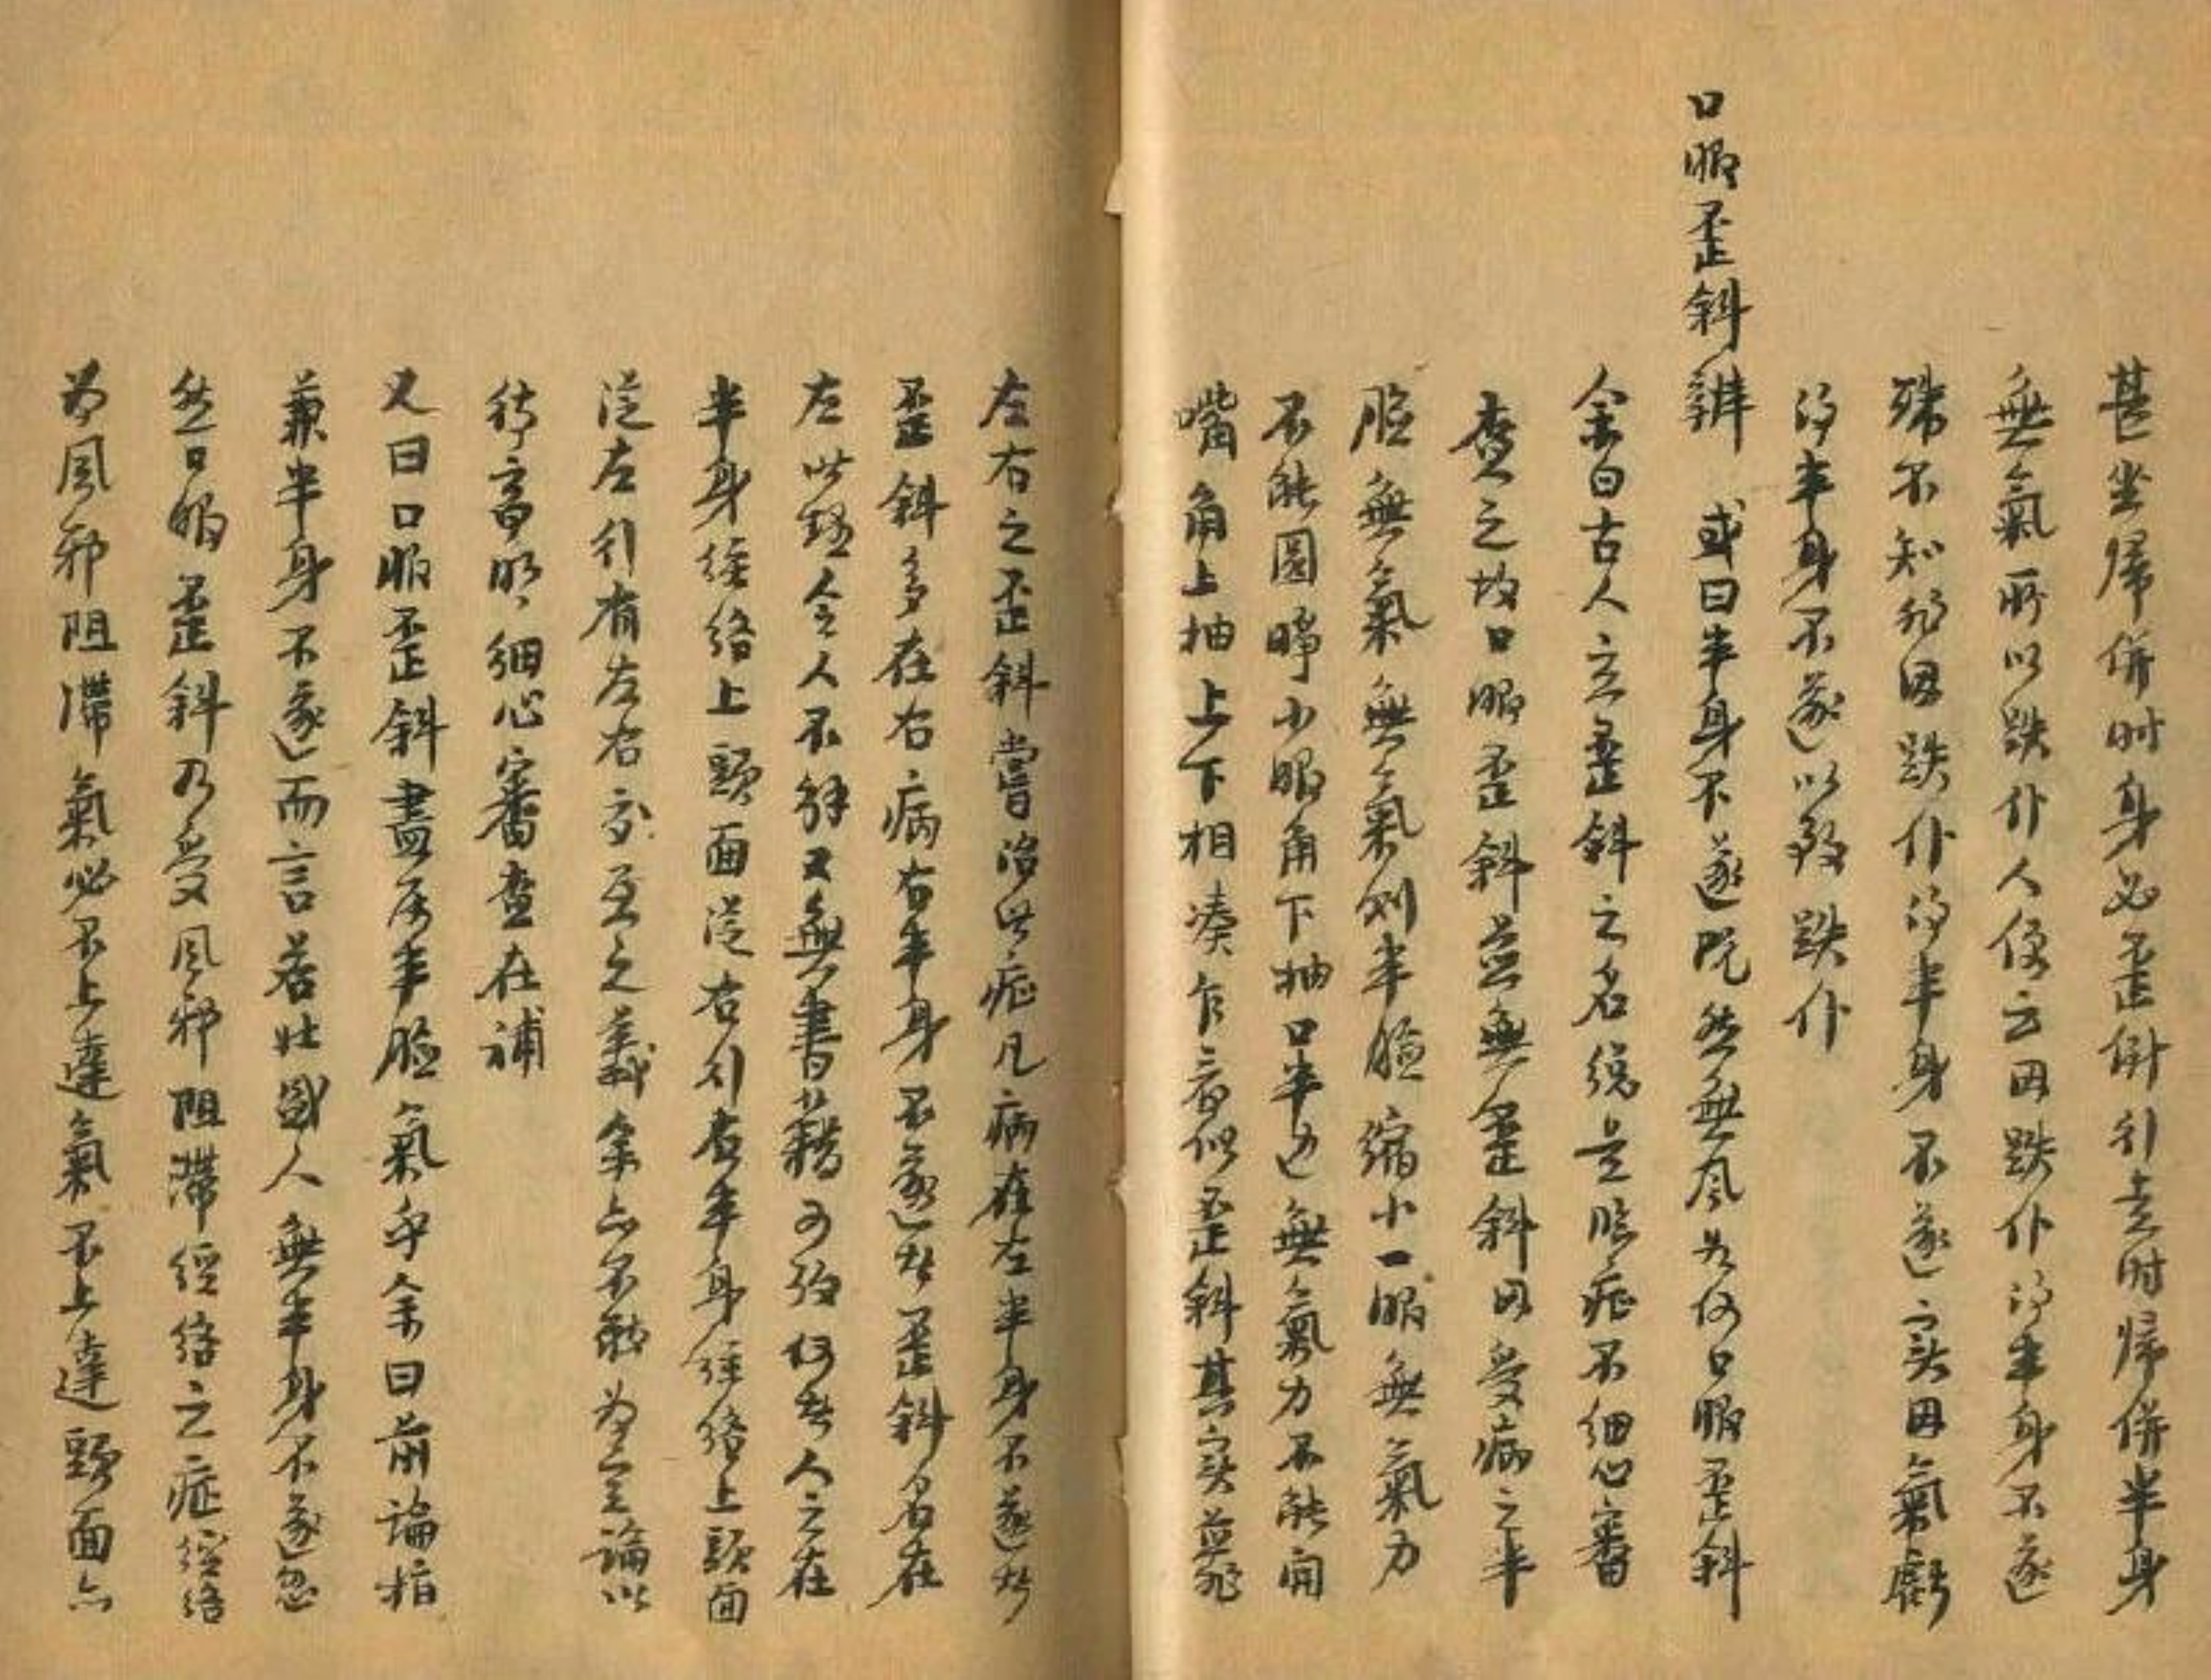 甚坐歸併時身必歪倒行走時歸併半身
無氣所以跌仆人便云因跌仆得半身不遂
殊不知非因跌仆得半身不遂实因氣虧
得半身不遂以致跌仆
口眼歪斜辨 或曰半身不遂既然無風為何口眼歪斜
余曰古人立歪斜之名總是臨症不細心審
查之故口眼歪斜並無歪斜因受病之半
臉無氣無氣則半臉縮小一眼無氣力
不能圓睜小眼角下抽口半边無氣力不能開
嘴角上抽上下相凑乍看似歪斜其实並非
左右之歪斜嘗治此症凡病在左半身不遂者
歪斜多在右病右半身不遂者歪斜多在
左此理令人不解又無書籍可攷何者人之在
半身経絡上頭面從右行右半身経絡上頭面
從左行有左右交互之義余亦不敢為定論以
待高明細心審查在補
又曰口眼歪斜盡属半臉氣乎余曰前論指
兼半身不遂而言若壯盛人無半身不遂忽
然口眼歪斜乃受風邪阻滯経絡之症経絡
為風邪阻滯氣必不上達氣不上達頭面亦